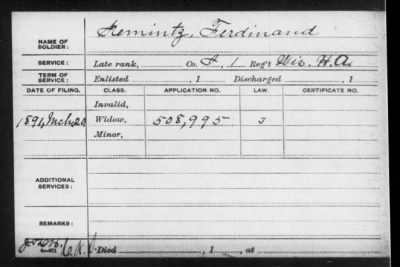 NAME OF SOLDIER: Ferdinand
SERVICE: Late rank, Co. I, 1 Reg't Wis. H.A.
TERM OF SERVICE: Enlisted , 1 Discharged , 1
DATE OF FILING. CLASS. APPLICATION NO. LAW. CERTIFICATE NO.
Invalid,
1894, Mch 22 Widow, 508,995 J
Minor,
ADDITIONAL SERVICES:
REMARKS:
Died , 1 , at